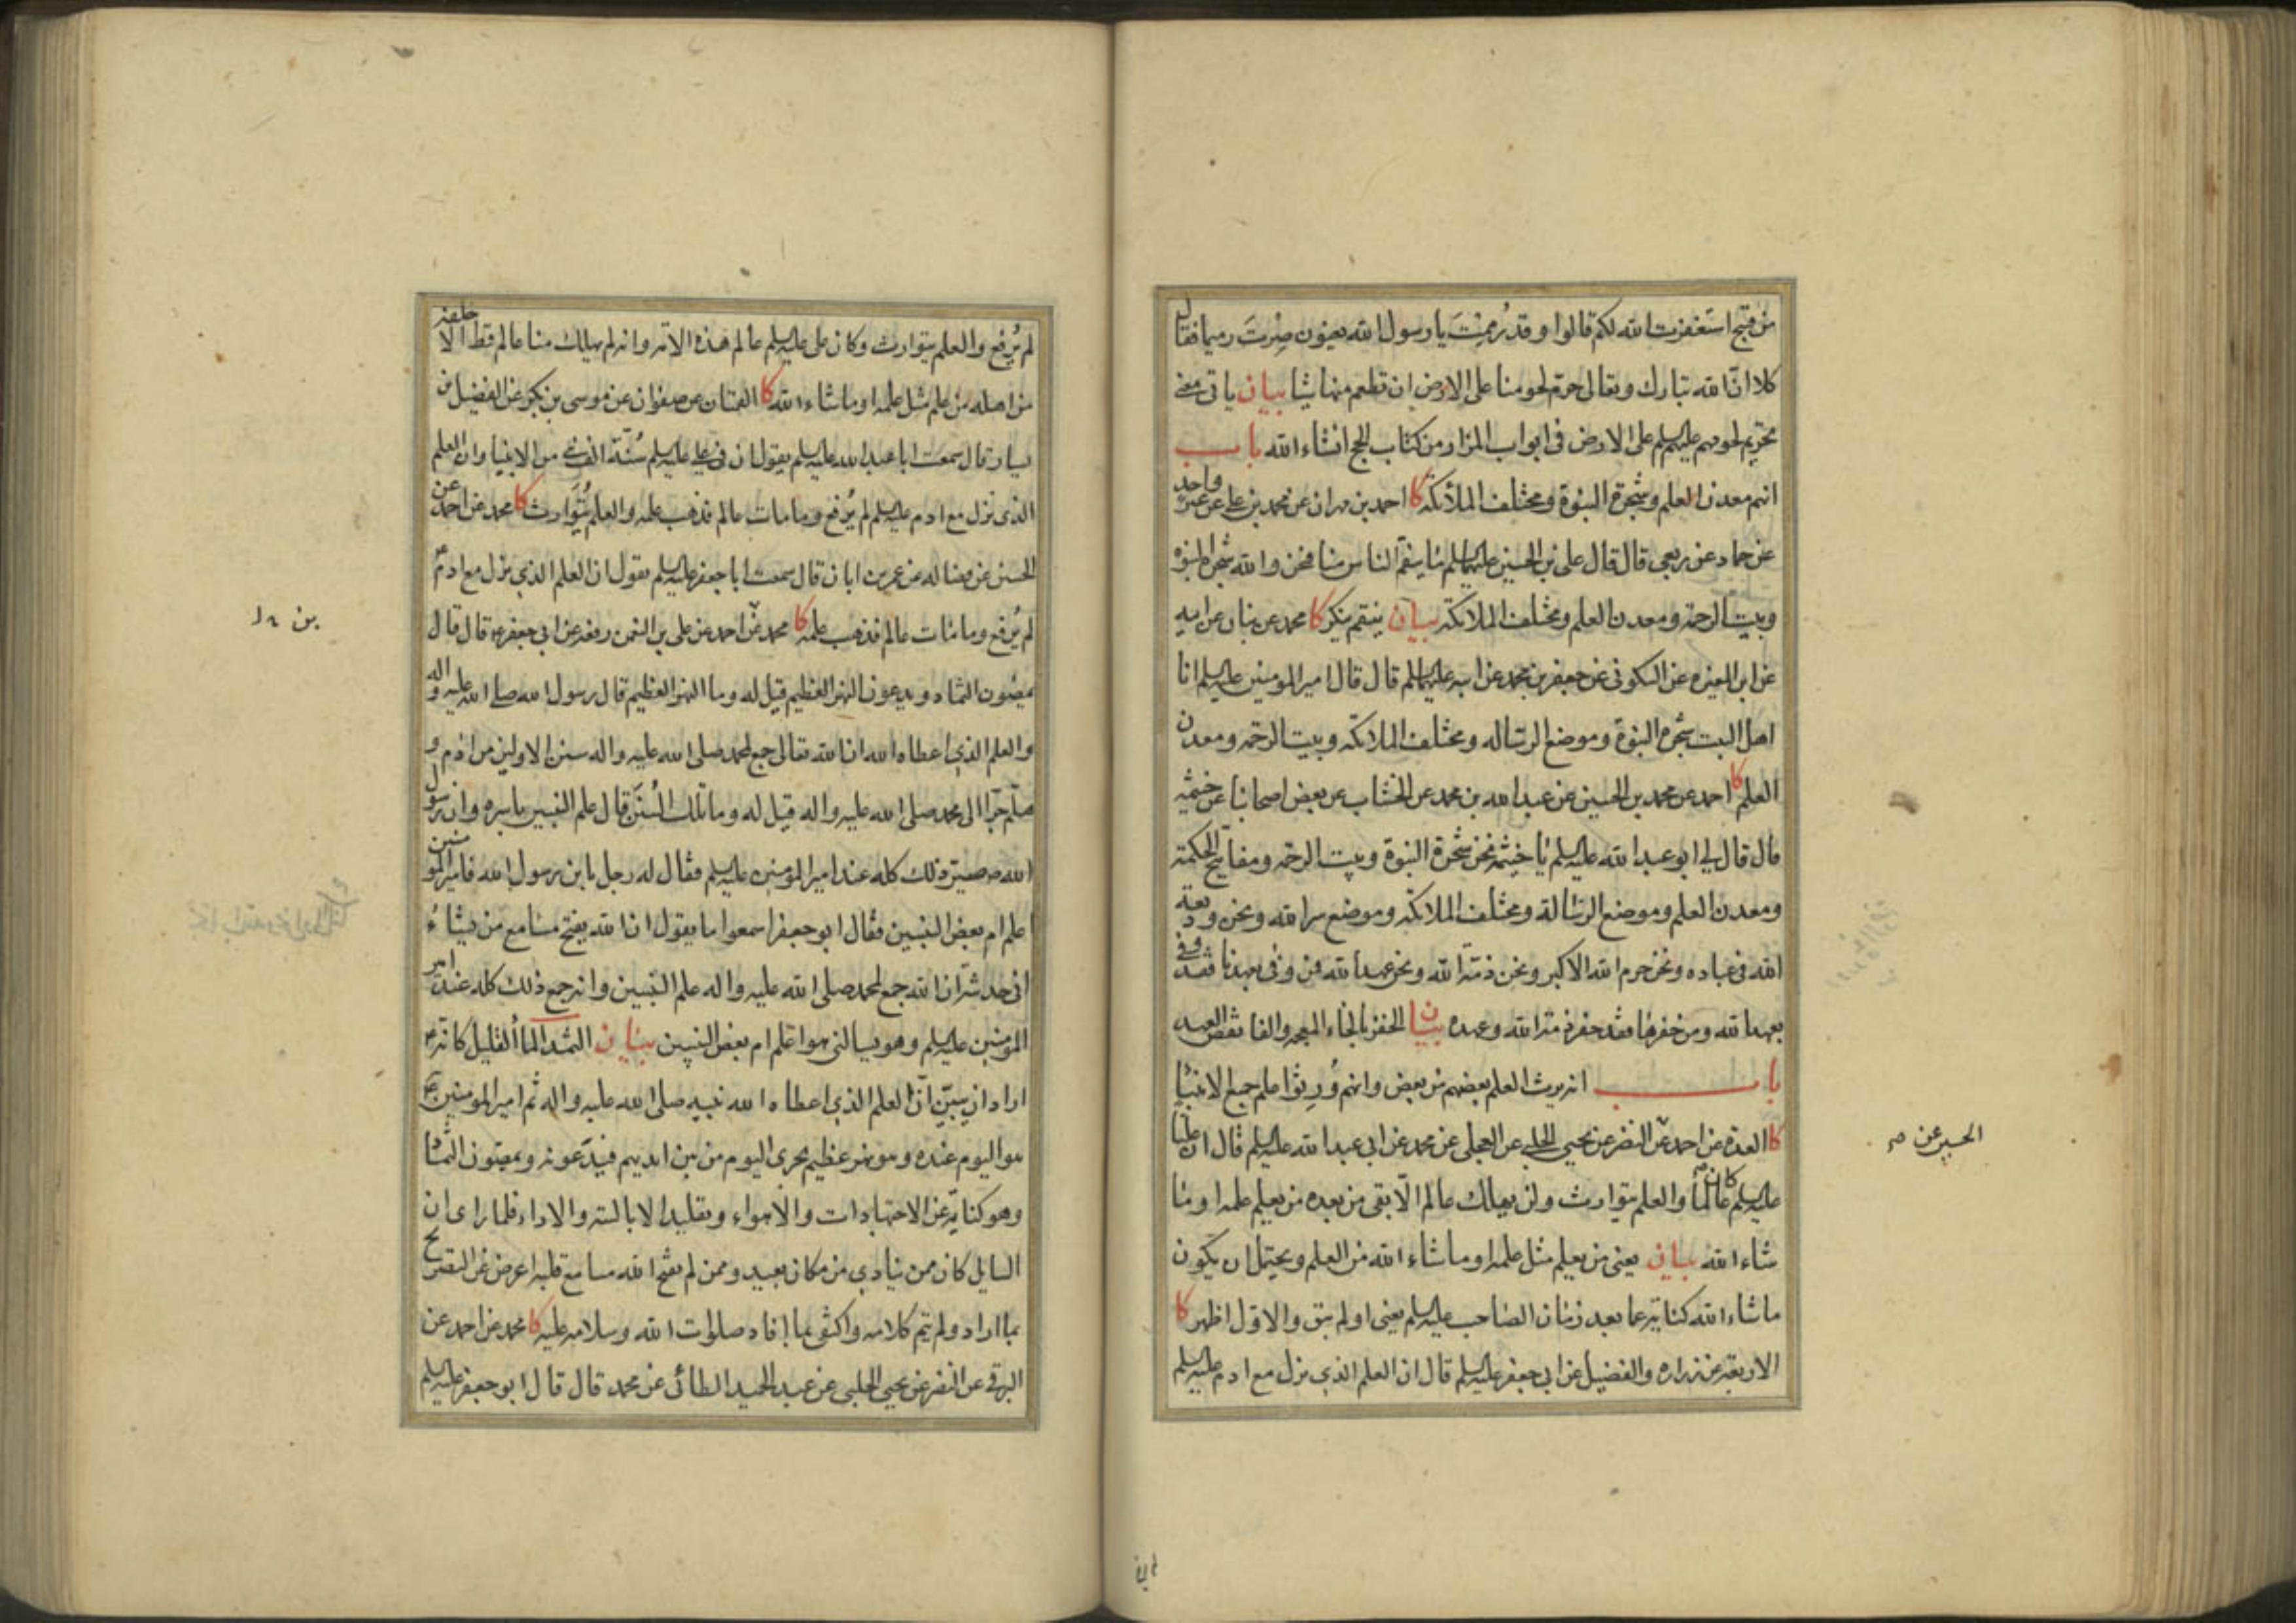 من قبيح استغفرت الله لكم قالوا وقد رممت يا رسول الله يعنون صرت رميما فقال
كلا ان الله تبارك وتعالى حرم لحومنا على الارض ان تطعم منها شيئا بيان ياتي معنى
تحريم لحومهم عليهم السلم على الارض في ابواب المزار من كتاب الحج انشاء الله باب
انهم معدن العلم وشجرة النبوة ومختلف الملائكة كا احمد بن مهران عن محمد بن علي عن غير واحد
عن حماد عن ربعي قال قال علي بن الحسين عليهما السلم ما ينقم الناس منا فنحن والله شجرة النبوة
وبيت الرحمة ومعدن العلم ومختلف الملائكة بيان ينقم ينكر كا محمد عن بنان عن ابيه
عن ابن المغيرة عن السكوني عن جعفر بن محمد عن ابيه عليهما السلم قال قال امير المومنين عليه السلم انا
اهل البيت شجرة النبوة وموضع الرساله ومختلف الملائكة وبيت الرحمة ومعدن
العلم كا احمد عن محمد بن الحسين عن عبد الله بن محمد عن الخشاب عن بعض اصحابنا عن خيثمة
قال قال لي ابو عبد الله عليه السلم يا خيثمة نحن شجرة النبوة وبيت الرحمة ومفاتيح الحكمة
ومعدن العلم وموضع الرسالة ومختلف الملائكة وموضع سر الله ونحن وديعة
الله في عباده ونحن حرم الله الاكبر ونحن ذمة الله ونحن عهد الله فمن وفى بعهدنا فقد وفى
بعهد الله ومن خفرها فقد خفر ذمة الله وعهده بيان الخفر بالخاء المعجمة والفا نقض العهد
باب انه يرث العلم بعضهم من بعض وانهم ورثوا علم جميع الانبيا
كا العدة عن احمد عن النضر عن يحيى الحلبي عن العجلي عن محمد عن ابي عبد الله عليه السلم قال ان عليا
الحسين عن صح
عليه السلم كان عالما والعلم يتوارث ولن يهلك عالم الا بقى من بعده من يعلم علمه او ما
شاء الله بيان يعني من يعلم مثل علمه او ما شاء الله من العلم ويحتمل ان يكون
ما شاء الله كناية عما بعد زمان الصاحب عليه السلم يعني او لم يبق والاول اظهر كا
الاربعة عن زرارة والفضيل عن ابي جعفر عليه السلم قال ان العلم الذي نزل مع ادم عليه السلم
لم يرفع والعلم يتوارث وكان علي عليه السلم عالم هذه الامة وانه لم يهلك منا عالم قط الا خلفه
من اهله من علم مثل علمه او ما شاء الله كا القميان عن صفوان عن موسى بن بكر عن الفضيل بن
يسار قال سمعت ابا عبد الله عليه السلم يقول ان في علي عليه السلم سنة الف نبي من الانبيا وان العلم
الذي نزل مع ادم عليه السلم لم يرفع وما مات عالم فذهب علمه والعلم يتوارث كا محمد عن احمد عن
الحسين عن فضالة عن عمر بن ابان قال سمعت ابا جعفر عليه السلم يقول ان العلم الذي نزل مع ادم ع
لم يرفع وما مات عالم فذهب علمه كا محمد عن احمد عن علي بن النعمن رفعه عن ابي جعفر ع قال قال
يمصون الثماد ويدعون النهر العظيم قيل له وما النهر العظيم قال رسول الله صلى الله عليه واله
والعلم الذي اعطاه الله ان الله تعالى جمع لمحمد صلى الله عليه واله سنن الاولين من ادم و
هلم جرا الى محمد صلى الله عليه واله قيل له وما تلك السنن قال علم النبيين باسره وان رسول
الله ص صير ذلك كله عند امير المومنين عليه السلم فقال له رجل يا بن رسول الله فامير المومنين
اعلم ام بعض النبيين فقال ابو جعفر اسمعوا ما يقول ان الله يفتح مسامع من يشاء
اني حدثته ان الله جمع لمحمد صلى الله عليه واله علم النبيين وانه جمع ذلك كله عند امير
المومنين عليه السلم وهو يسالني هو اعلم ام بعض النبيين بيان الثمد الماأ القليل كانه ع
اراد ان يبين ان العلم الذي اعطاه الله نبيه صلى الله عليه واله ثم امير المومنين ع
هو اليوم عنده وهو نهر عظيم يجرى اليوم من بين ايديهم فيدعونه ويمصون الثماد
وهو كناية عن الاجتهادات والاهواء وتقليد الابالسة والاراء فلما راى ان
السايل كان ممن ينادي من مكان بعيد وممن لم يفتح الله مسامع قلبه اعرض عن التصريح
بما اراد ولم يتم كلامه واكتفى بما افاد صلوات الله وسلامه عليه كا محمد عن احمد عن
البرقي عن النضر عن يحيى الحلبي عن عبد الحميد الطائي عن محمد قال قال ابو جعفر عليه السلم